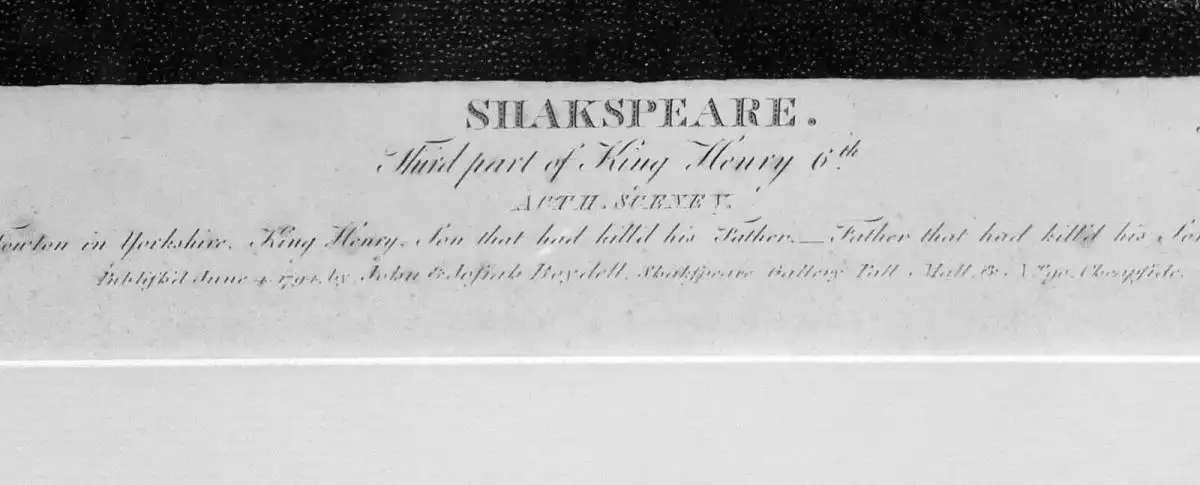 SHAKSPEARE.
Third part of King Henry 6th
ACT II. SCENE V.
Towton in Yorkshire. King Henry. Son that had kill'd his Father._Father that had kill'd his
Publish'd June 4, by John & Josiah Boydell, Shakspeare Gallery Pall Mall, & No. 90, Cheapside.